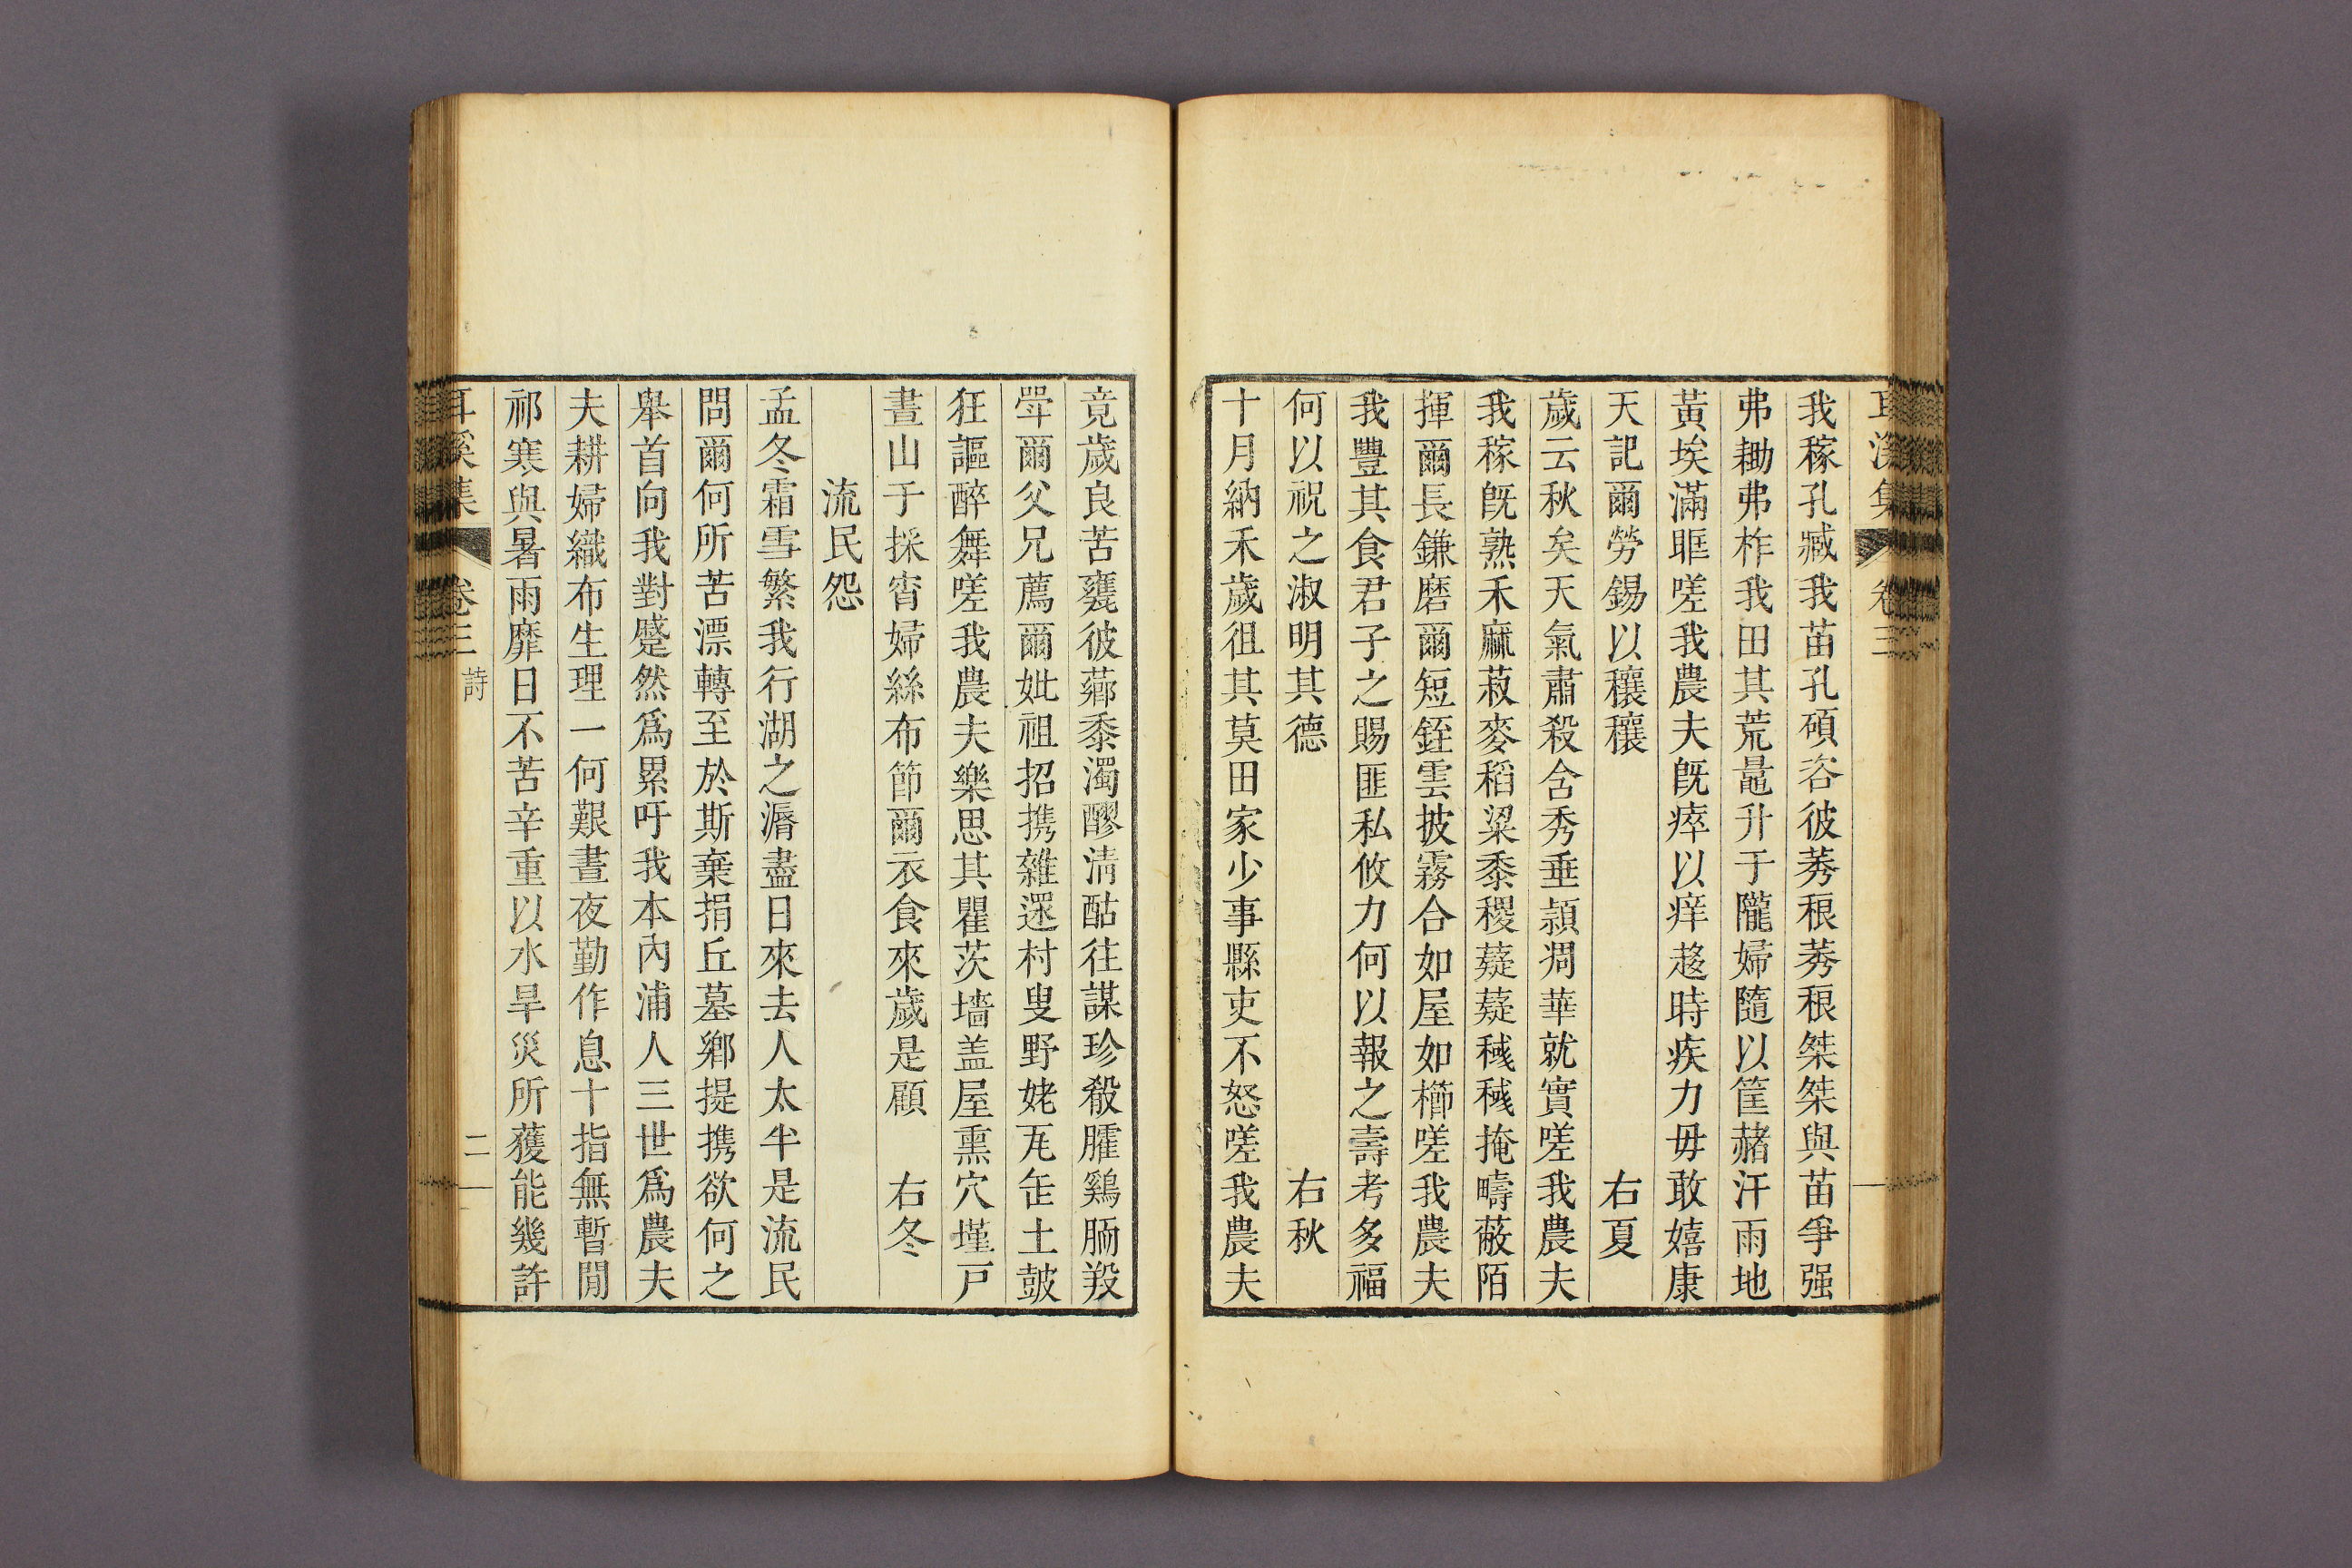 耳溪集 卷三
我稼孔臧我苗孔碩咨彼莠稂莠稂桀桀與苗爭强
弗耡弗柞我田其荒鼂升于隴婦隨以筐赭汗雨地
黃埃滿眶嗟我農夫旣瘁以痒趍時疾力毋敢嬉康
天記爾勞錫以穰穰 右夏
歲云秋矣天氣肅殺含秀垂潁凋華就實嗟我農夫
我稼旣熟禾麻菽麥稻粱黍稷薿薿稶稶掩疇蔽陌
揮爾長鎌磨爾短銍雲披霧合如屋如櫛嗟我農夫
我豐其食君子之賜匪私攸力何以報之壽考多福
何以祝之淑明其德 右秋
十月納禾歲徂其莫田家少事縣吏不怒嗟我農夫
竟歲良苦甕彼薌黍濁醪淸酤往謀珍殽臛鷄胹羖
斝爾父兄薦爾妣祖招携雜遝村叟野姥瓦缶土皷
狂謳醉舞嗟我農夫樂思其瞿茨墻盖屋熏穴墐戶
晝山于採宵婦絲布節爾衣食來歲是顧 右冬
流民怨
孟冬霜雪繁我行湖之漘盡日來去人太半是流民
問爾何所苦漂轉至於斯棄捐丘墓鄕提携欲何之
舉首向我對蹙然爲累吁我本內浦人三世爲農夫
夫耕婦織布生理一何艱晝夜勤作息十指無暫閒
祁寒與暑雨靡日不苦辛重以水旱災所獲能幾許
耳溪集 卷三 詩 二